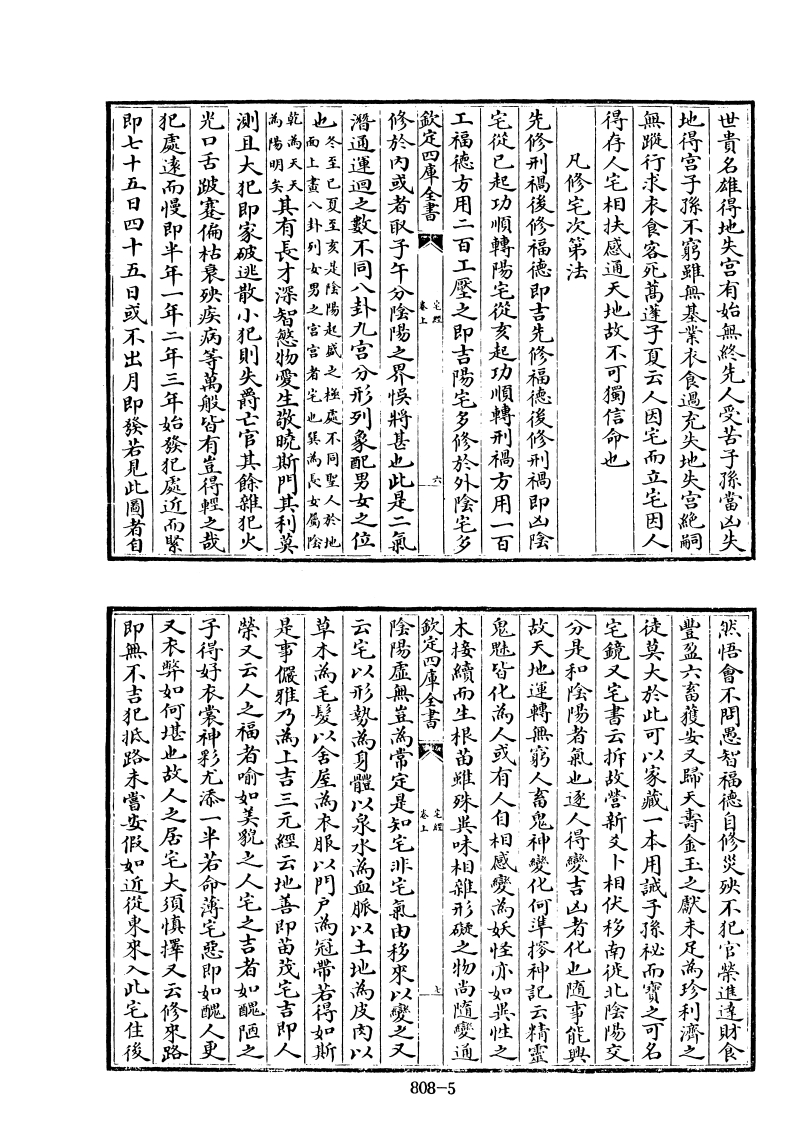 世貴名雄得地失宫有始無終先人受苦子孫當凶失
地得宫子孫不窮雖無基業衣食過充失地失宫絶嗣
無蹤行求衣食客死蒿蓬子夏云人因宅而立宅因人
得存人宅相扶感通天地故不可獨信命也
凡修宅次第法
先修刑禍後修福德即吉先修福德後修刑禍即凶陰
宅從巳起功順轉陽宅從亥起功順轉刑禍方用一百
工福德方用二百工壓之即吉陽宅多修於外陰宅多
欽定四庫全書
宅經
卷上
六
修於内或者取子午分陰陽之界悮將甚也此是二氣
潛通運迴之數不同八卦九宫分形列象配男女之位
也冬至巳夏至亥是陰陽起盛之極處不同聖人於地
而上畫八卦列女男之宫宫者宅也巽為長女屬陰
乾為天天
為陽明矣其有長才深智慜物愛生敬曉斯門其利莫
測且大犯即家破逃散小犯則失爵亡官其餘雜犯火
光口舌跛蹇偏枯衰殃疾病等萬般皆有豈得輕之哉
犯處遠而慢即半年一年二年三年始發犯處近而緊
即七十五日四十五日或不出月即發若見此圖者自
然悟會不問愚智福德自修災殃不犯官榮進達財食
豐盈六畜獲安又歸天壽金玉之獻未足為珍利濟之
徒莫大於此可以家藏一本用誡子孫祕而寶之可名
宅鏡又宅書云拆故營新爻卜相伏移南徙北陰陽交
分是和陰陽者氣也逐人得變吉凶者化也隨事能興
故天地運轉無窮人畜鬼神變化何準搜神記云精靈
鬼魅皆化為人或有人自相感變為妖怪亦如異性之
木接續而生根苗雖殊異味相雜形礙之物尚隨變通
欽定四庫全書
宅經
卷上
七
陰陽虛無豈為常定是知宅非宅氣由移來以變之又
云宅以形勢為身體以泉水為血脈以土地為皮肉以
草木為毛髮以舍屋為衣服以門戶為冠帶若得如斯
是事儼雅乃為上吉三元經云地善即苗茂宅吉即人
榮又云人之福者喻如美貌之人宅之吉者如醜陋之
子得好衣裳神彩尤添一半若命薄宅惡即如醜人更
又衣弊如何堪也故人之居宅大須慎擇又云修來路
即無不吉犯抵路未嘗安假如近從東來入此宅住後
808-5